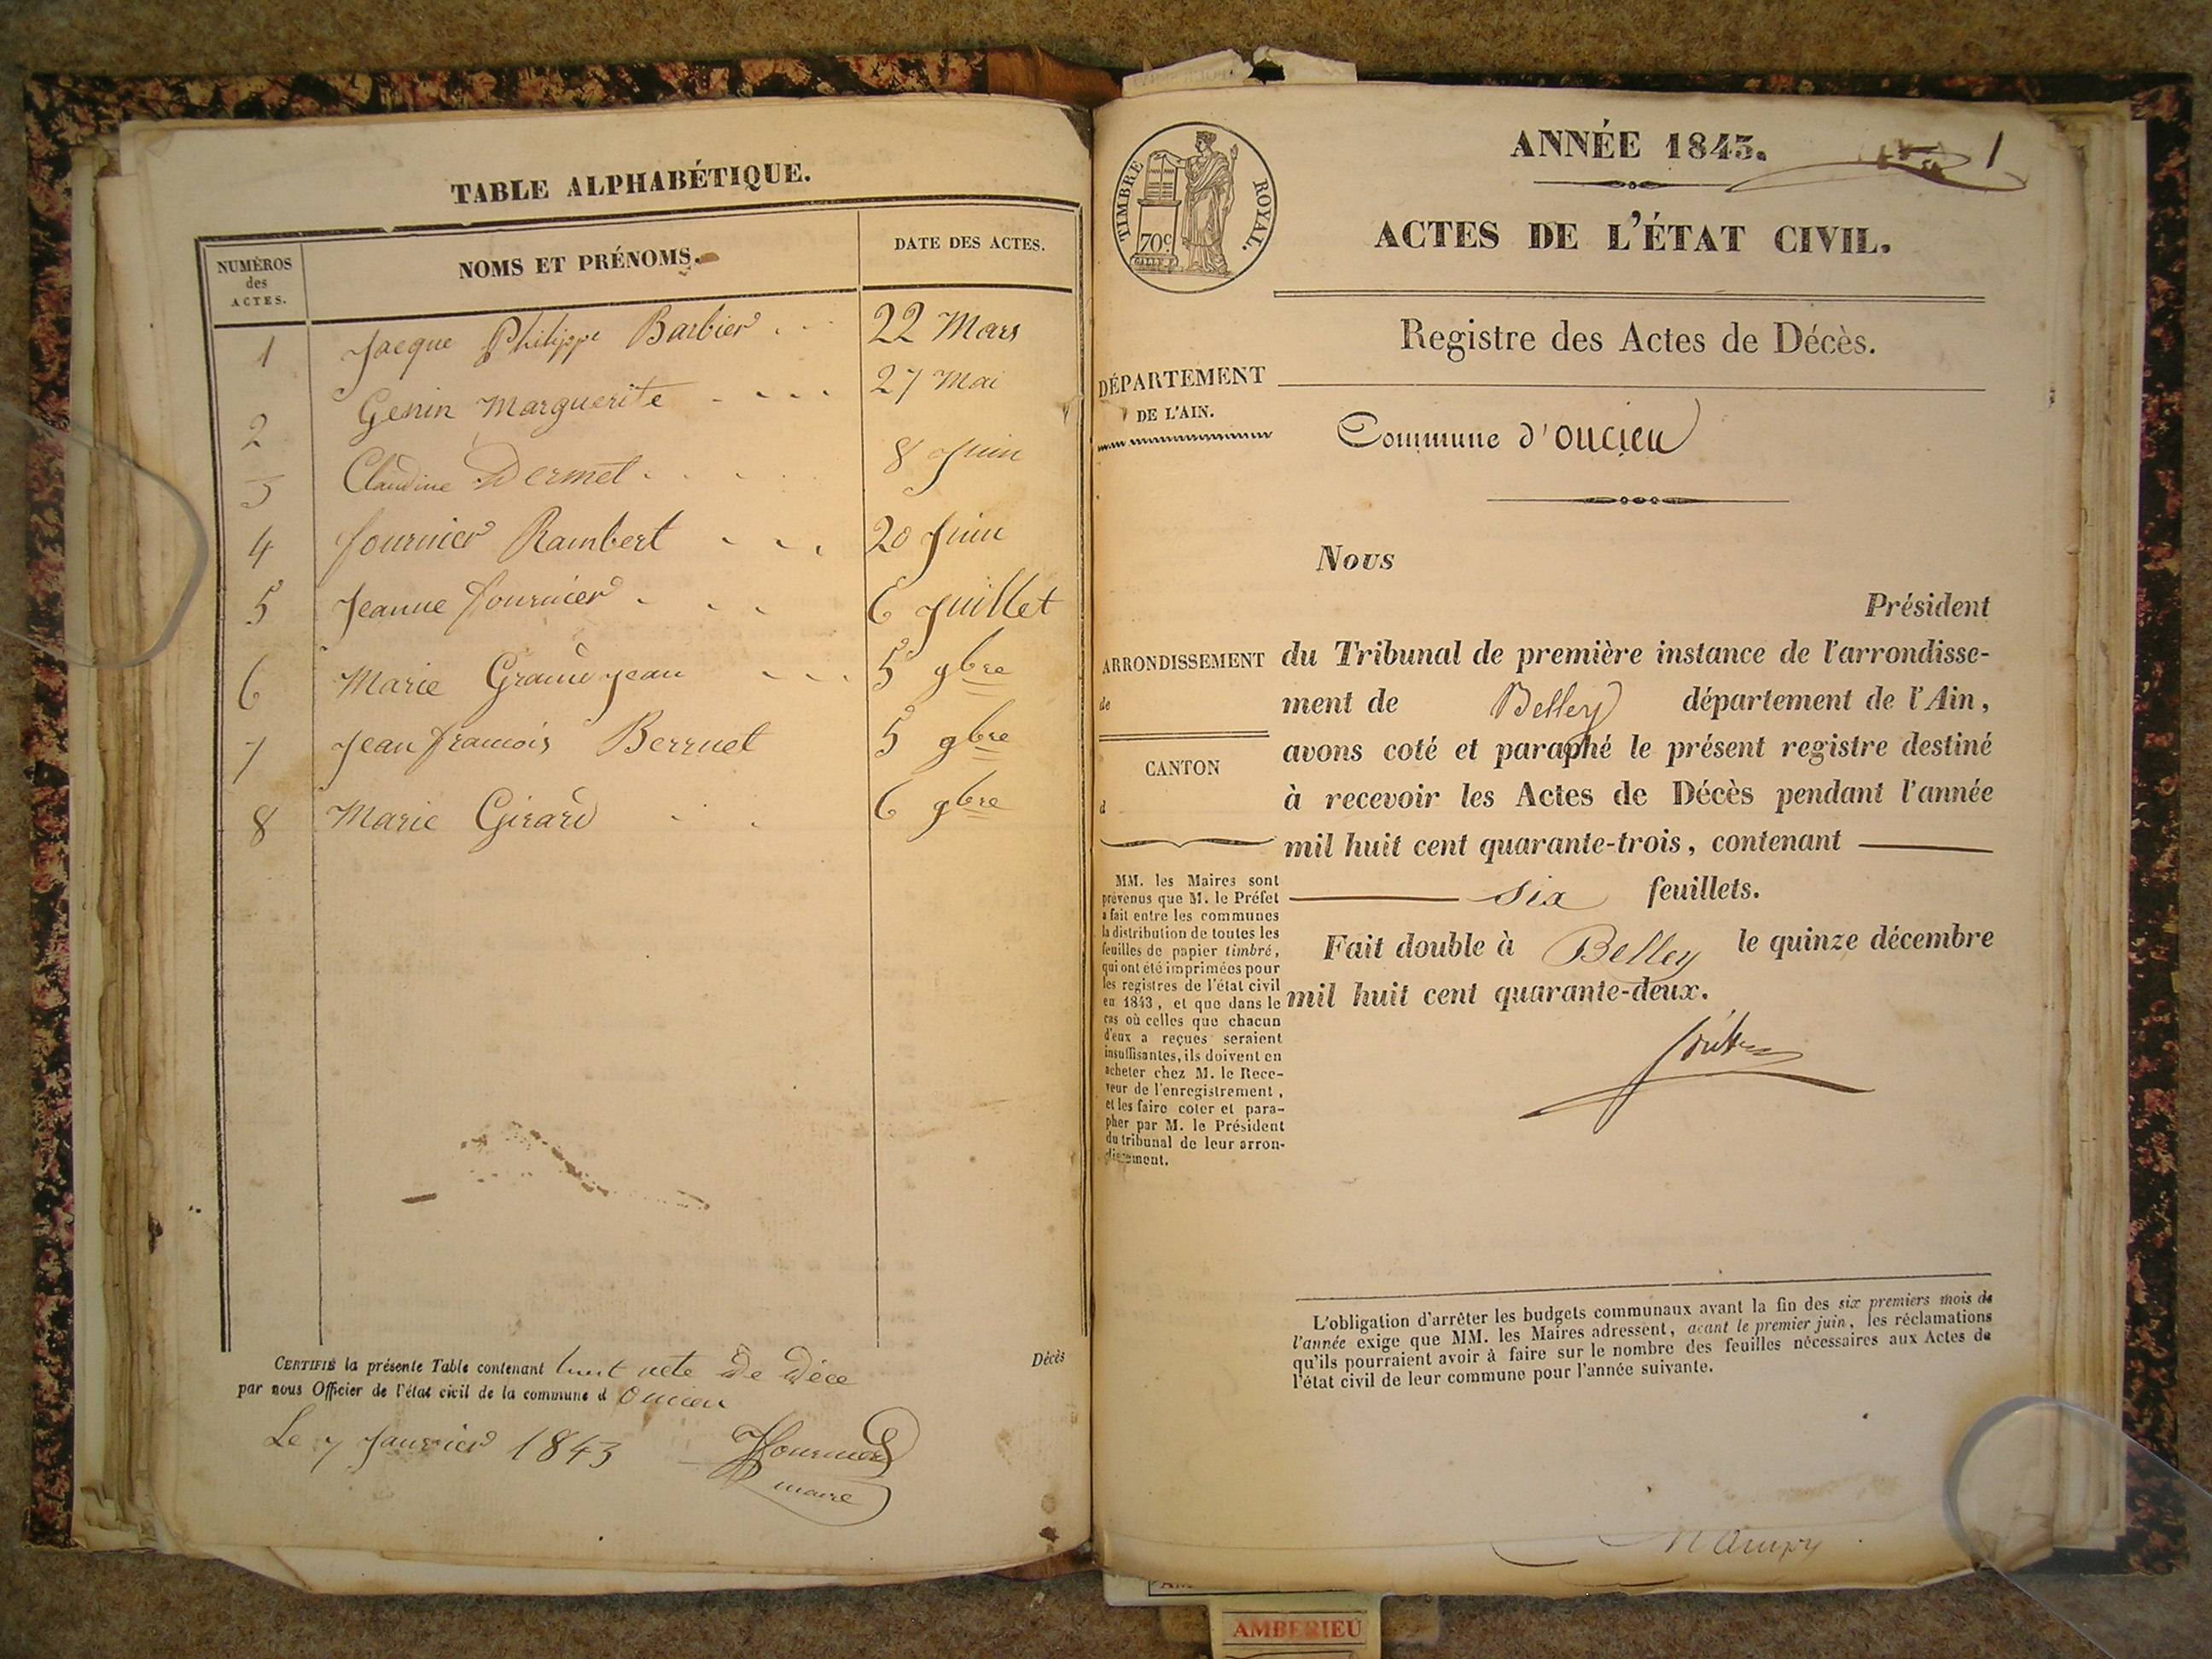 TABLE ALPHABÉTIQUE.
NUMÉROS des ACTES.
NOMS ET PRÉNOMS.
DATE DES ACTES.
1 Jacque Philippe Barbier 22 Mars
2 Genin Marguerite 27 Mai
3 Claudine Dermet 8 Juin
4 fournier Rambert 20 Juin
5 Jeanne fournier 6 Juillet
6 Marie Grand jean 5 9bre
7 Jean francois Berruet 5 9bre
8 Marie Girard 6 9bre
CERTIFIÉ la présente Table contenant huit acte De Déce Décès
par nous Officier de l'état civil de la commune d Oncieu
Le 7 Janvier 1843 fournier
maire
TIMBRE ROYAL.
70c
ANNÉE 1843.
1
ACTES DE L'ÉTAT CIVIL.
Registre des Actes de Décès.
DÉPARTEMENT
DE L'AIN.
Commune d'oncieu
Nous
Président
ARRONDISSEMENT
de
CANTON
d
du Tribunal de première instance de l'arrondisse-
ment de Belley département de l'Ain,
avons coté et paraphé le présent registre destiné
à recevoir les Actes de Décès pendant l'année
mil huit cent quarante-trois, contenant
six feuillets.
Fait double à Belley le quinze décembre
mil huit cent quarante-deux.
MM. les Maires sont
prévenus que M. le Préfet
a fait entre les communes
la distribution de toutes les
feuilles de papier timbré,
qui ont été imprimées pour
les registres de l'état civil
en 1843, et que dans le
cas où celles que chacun
d'eux a reçues seraient
insuffisantes, ils doivent en
acheter chez M. le Rece-
veur de l'enregistrement,
et les faire coter et para-
pher par M. le Président
du tribunal de leur arron-
dissement.
L'obligation d'arrêter les budgets communaux avant la fin des six premiers mois de
l'année exige que MM. les Maires adressent, avant le premier juin, les réclamations
qu'ils pourraient avoir à faire sur le nombre des feuilles nécessaires aux Actes de
l'état civil de leur commune pour l'année suivante.
AMBERIEU